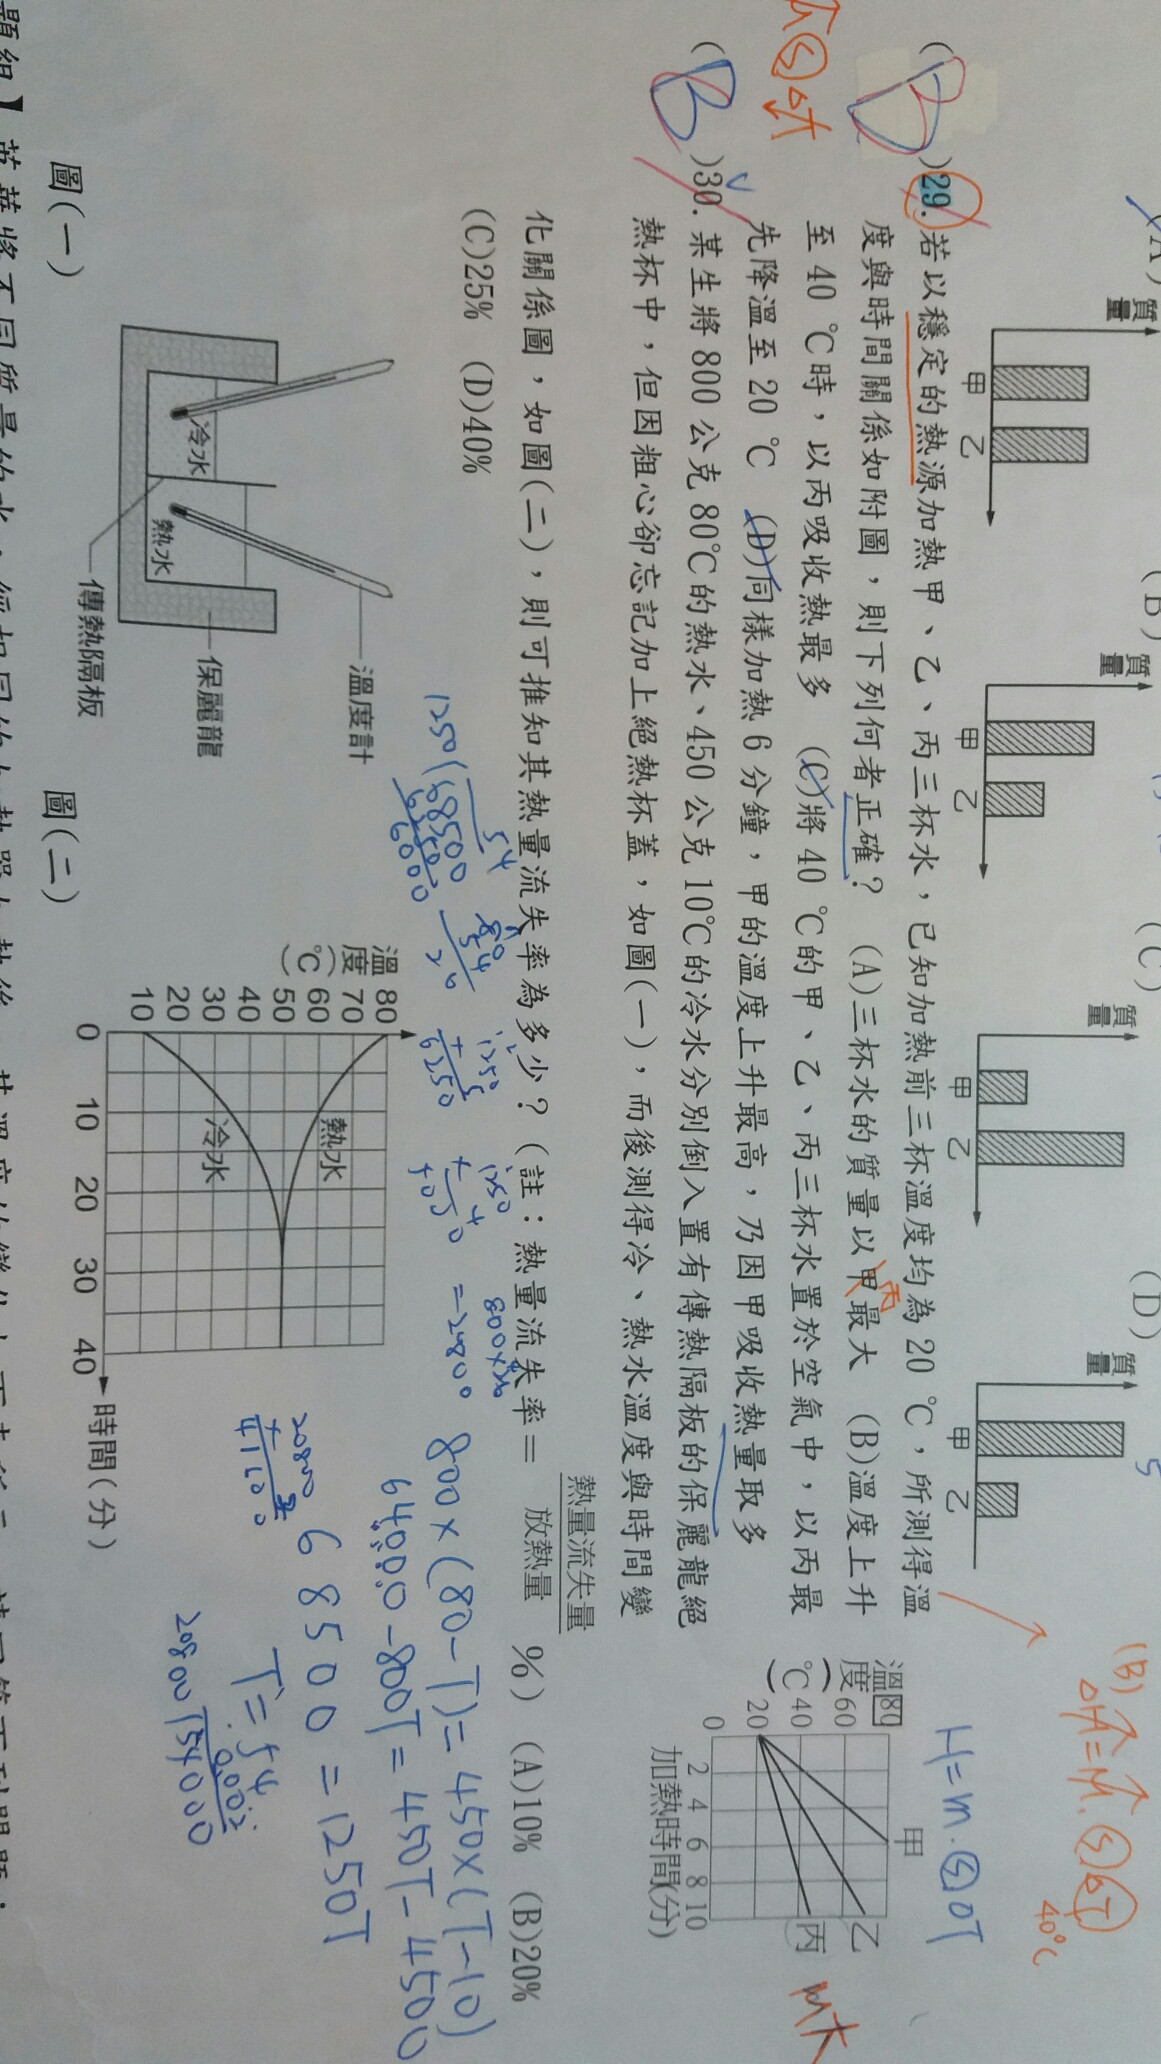 (A) (B) (C) (D)
質量 甲 乙
質量 甲 乙
質量 甲 乙
質量 甲 乙
(B)
△H=M·S△T
40°C
H=m·S△T
( B )29.若以穩定的熱源加熱甲、乙、丙三杯水，已知加熱前三杯溫度均為 20 ℃，所測得溫
度與時間關係如附圖，則下列何者正確？ (A)三杯水的質量以甲最大 (B)溫度上升
丙
至 40 ℃時，以丙吸收熱最多 (C)將 40 ℃的甲、乙、丙三杯水置於空氣中，以丙最
先降溫至 20 ℃ (D)同樣加熱 6 分鐘，甲的溫度上升最高，乃因甲吸收熱量取多
溫度(℃)
80
60
40
20
0 2 4 6 8 10
加熱時間(分)
甲
乙
丙
M大
( B )30.某生將 800 公克 80℃的熱水、450 公克 10℃的冷水分別倒入置有傳熱隔板的保麗龍絕
熱杯中，但因粗心卻忘記加上絕熱杯蓋，如圖(一)，而後測得冷、熱水溫度與時間變
化關係圖，如圖(二)，則可推知其熱量流失率為多少？(註：熱量流失率＝ 熱量流失量 / 放熱量 %) (A)10% (B)20%
(C)25% (D)40%
800×(80-T)=450×(T-10)
64000-800T=450T-4500
68500=1250T
T=54
溫度計
保麗龍
傳熱隔板
冷水
熱水
圖(一)
溫度(℃)
80
70
60
50
40
30
20
10
0 10 20 30 40
時間(分)
熱水
冷水
圖(二)
題組】